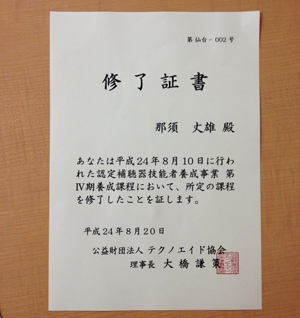 第仙台－002号
修了証書
那須 丈雄 殿
あなたは平成24年8月10日に行わ
れた認定補聴器技能者養成事業 第
Ⅳ期養成課程において、所定の課程
を修了したことを証します。
平成24年8月20日
公益財団法人 テクノエイド協会
理事長 大橋謙策